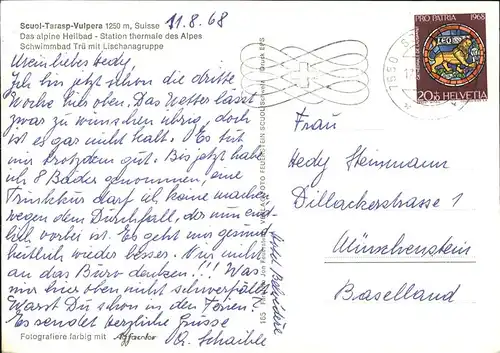 Scuol-Tarasp-Vulpera 1250 m, Suisse
11.8.68
Das alpine Heilbad - Station thermale des Alpes
Schwimmbad Trü mit Lischanagruppe
Mein liebes Hedy,
Ich bin jetzt schon die dritte
Woche hier oben. Das Wetter lässt
zwar zu wünschen übrig, doch
ist es gar nicht kalt. Es tut
mir trotzdem gut. Bis jetzt hab
ich 8 Bäder genommen, eine
Trinkkur darf ich keine machen
wegen dem Durchfall, der nun end-
lich vorbei ist. Es geht mir gesund-
heitlich wieder besser. Nur nicht
an das Büro denken!!! Was
mir hier oben nicht schwerfällt.
Warst Du schon in den Ferien?
Es sendet herzliche Grüsse
G. Schaible
Hotel Belvédère
Fotografiere farbig mit Agfacolor
165
FOTO FEUERSTEIN SCUOL
Druck EPS
7550 S
PRO PATRIA 1968
20+10 HELVETIA
Frau
Hedy Steinmann
Dillackerstrasse 1
Münchenstein
Baselland